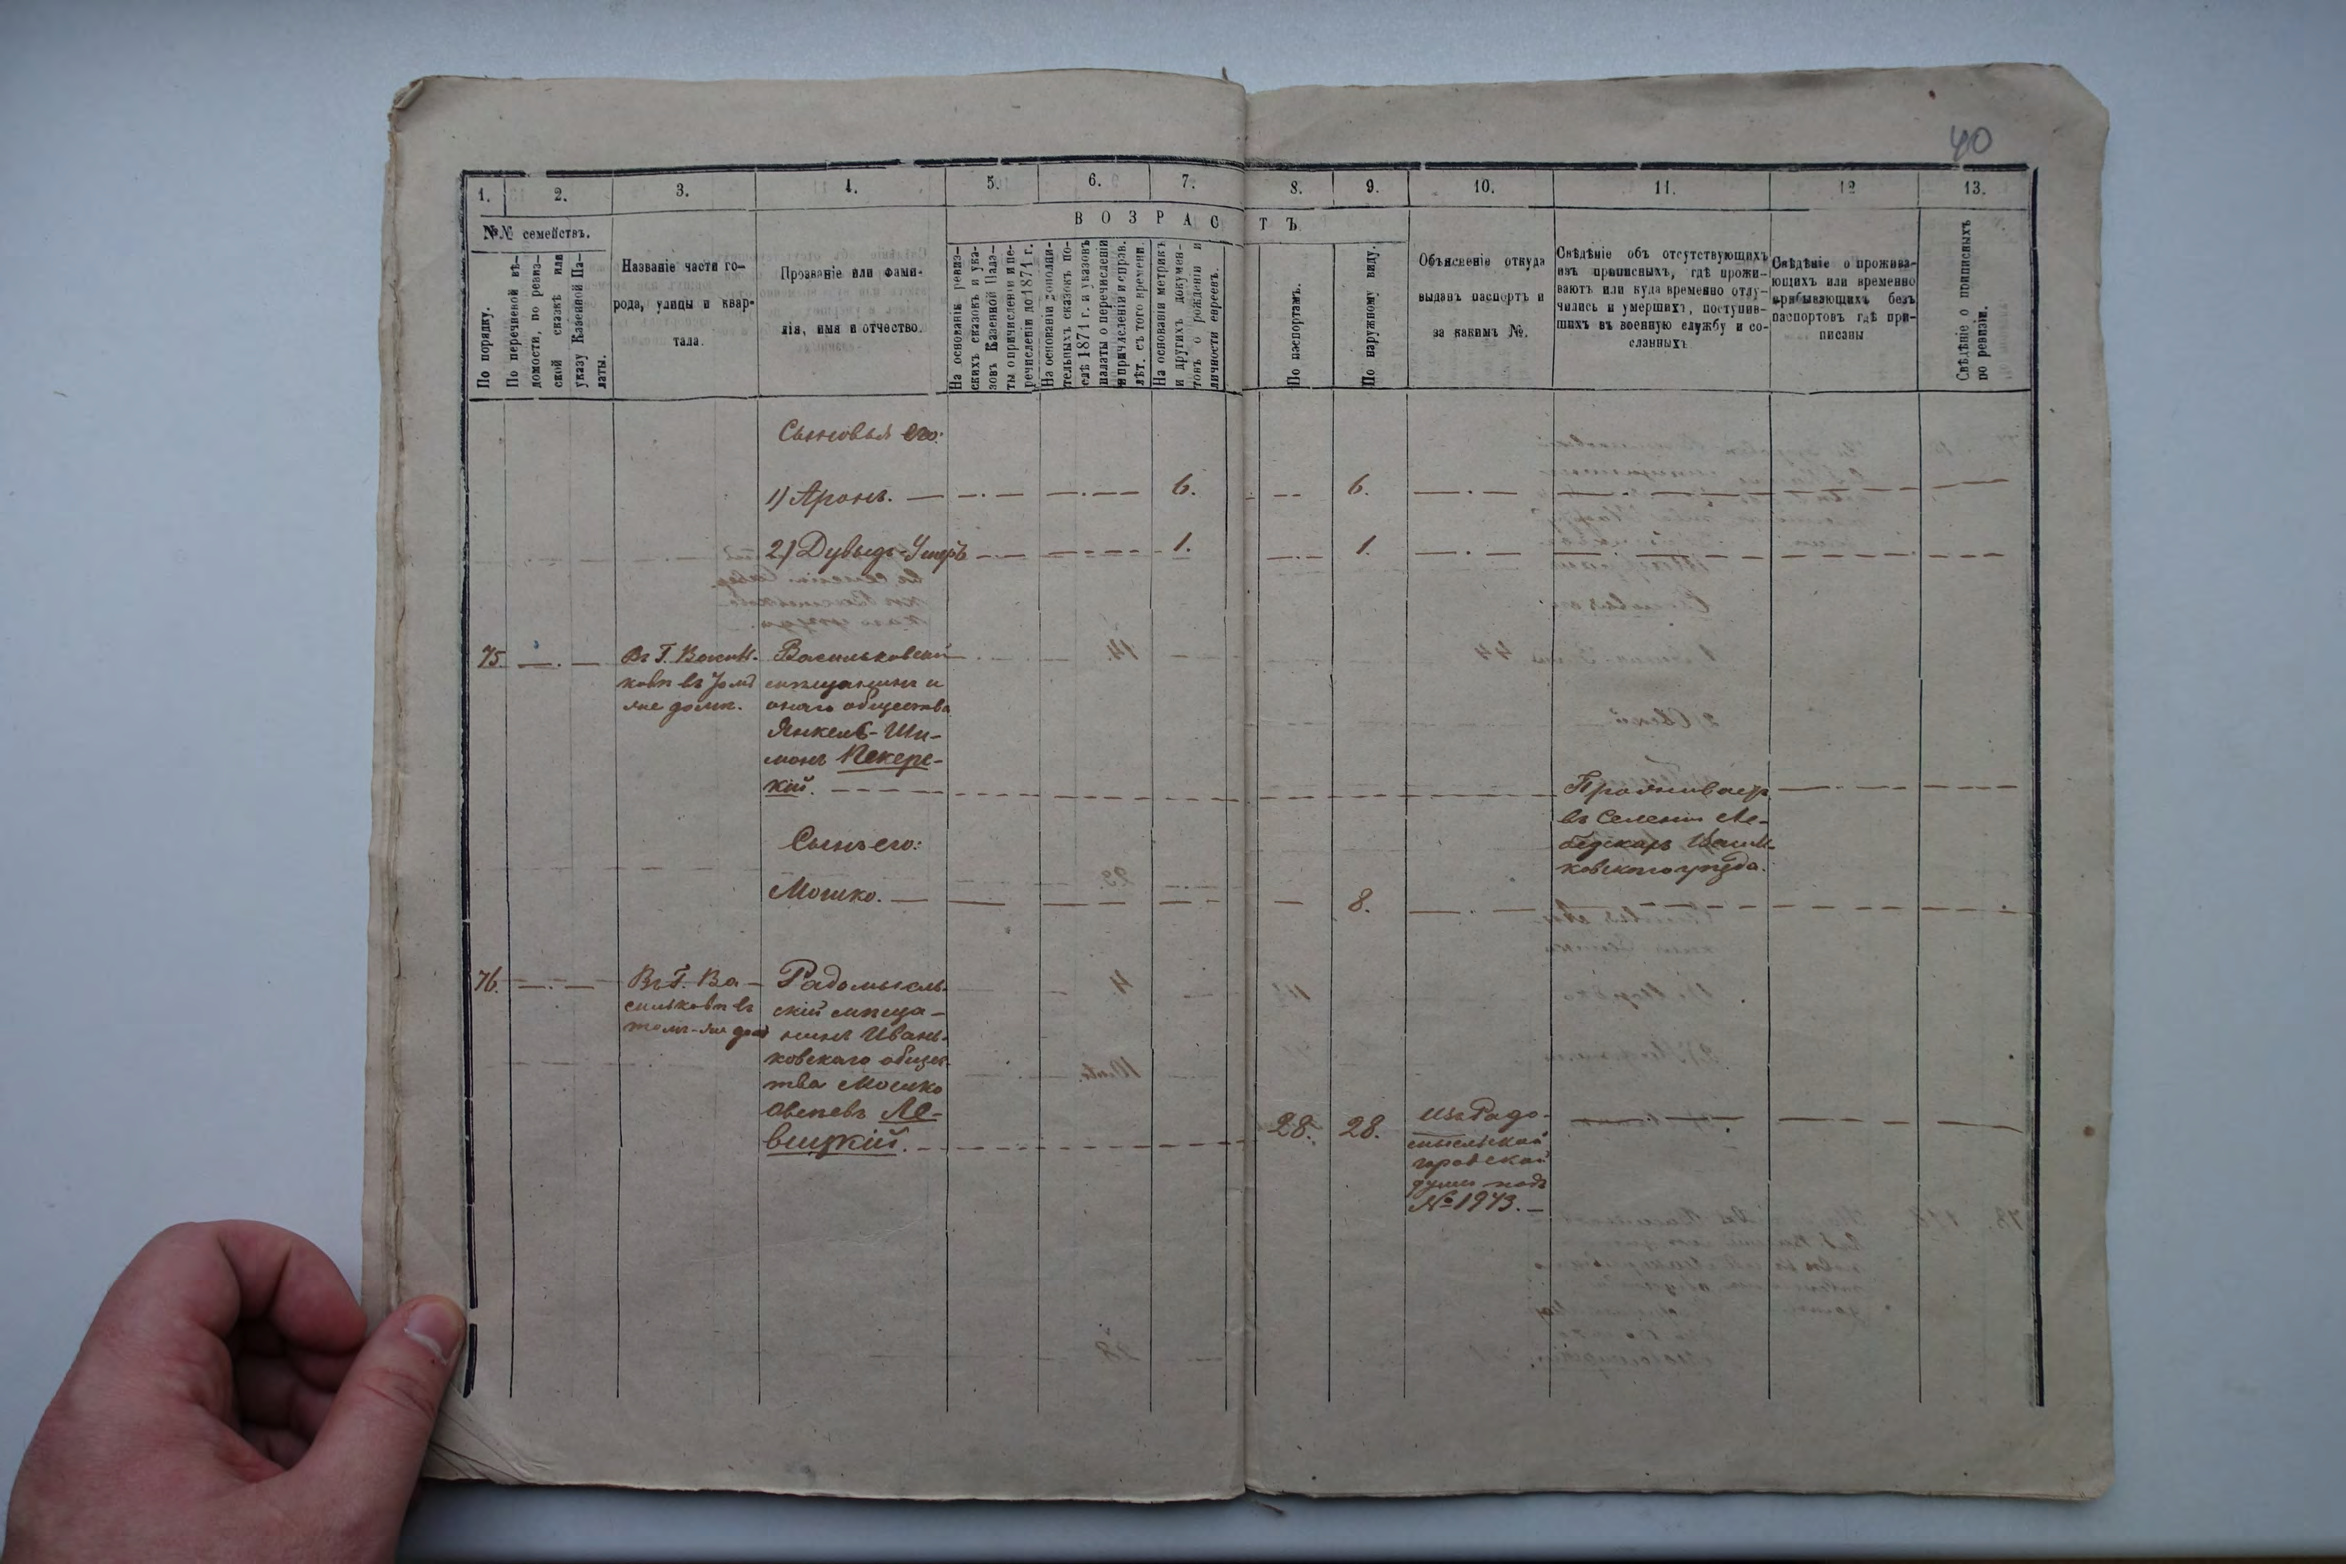 40
1. 2. 3. 4. 5. 6. 7. 8. 9. 10. 11. 12 13.
№№ семействъ.
ВОЗРАСТЪ
По порядку.
По перечневой вѣ-
домости, по ревиз-
ской сказкѣ или
указу Казенной Па-
латы.
Названіе части го-
рода, улицы и квар-
тала.
Прозваніе или фами-
лія, имя и отчество.
На основаніи ревиз-
скихъ сказокъ и ука-
зовъ Казенной Пала-
ты о причисленіи и пе-
речисленіи до 1871 г.
На основаніи дополни-
тельныхъ сказокъ по-
слѣ 1871 г. и указовъ
палаты о перечисленіи
и причисленіи и справ.
лѣт. съ того времени.
На основаніи метрикъ
и другихъ докумен-
товъ о рожденіи и
личности евреевъ.
По паспортамъ.
По наружному виду.
Объясненіе откуда
выданъ паспортъ и
за какимъ №.
Свѣдѣніе объ отсутствующихъ
изъ приписныхъ, гдѣ прожи-
ваютъ или куда временно отлу-
чились и умершихъ, поступив-
шихъ въ военную службу и со-
сланныхъ
Свѣдѣніе о прожива-
ющихъ или временно
прибывающихъ безъ
паспортовъ гдѣ при-
писаны
Свѣдѣніе о приписныхъ
по ревизіи.
Сыновья его:
1) Аронъ. — 6. 6.
2) Дувыдъ-Умеръ 1. 1.
75. Въ Г. Василь-
ковѣ въ томъ
же домѣ.
Васильковскій
мѣщанинъ и
онаго общества
Янкель-Ши-
монъ Пекере-
кій.
Проживаетъ
въ Селеніи
Василь-
ковскаго уѣзда.
Сынъ его:
Мошко. — 8.
76. Въ Г. Ва-
сильковѣ въ
томъ-же домѣ
Радомысль-
скій мѣща-
нинъ Ивань-
ковскаго общес-
тва Мошко
Овсѣевъ Ле-
вицкій.
28. 28.
Изъ Радо-
мысльской
городской
думы подъ
№ 1973. —